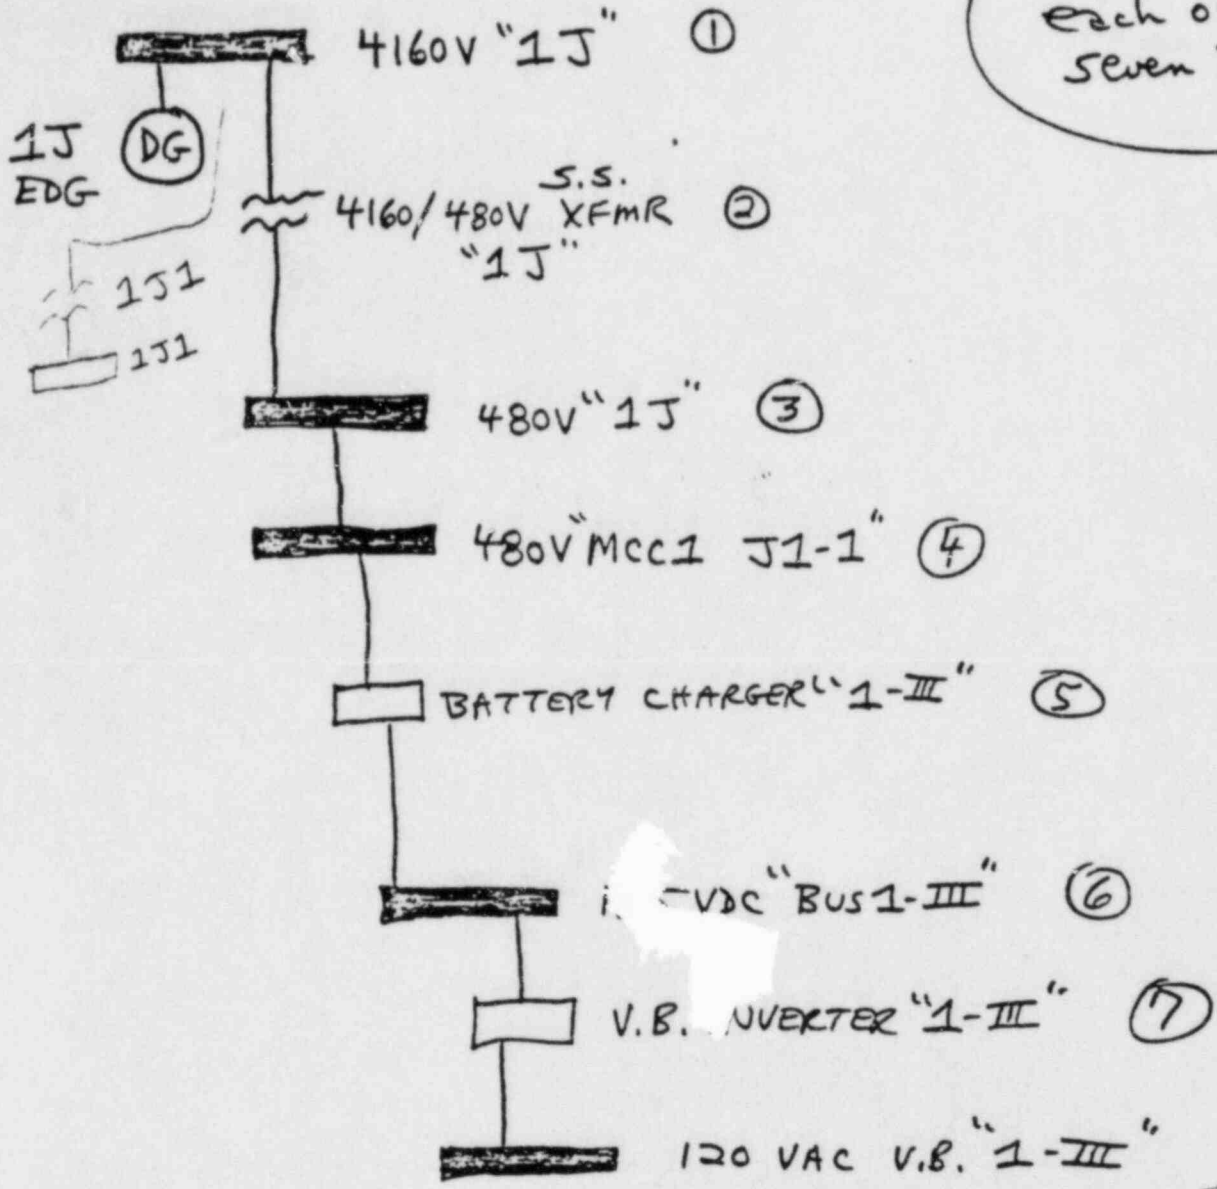 each
seven
4160V "1J" ①
1J
EDG
DG
S.S.
4160/480V XFMR ②
"1J"
1J1
1J1
480V "1J" ③
480V "MCC1 J1-1" ④
BATTERY CHARGER "1-III" ⑤
VDC "BUS 1-III" ⑥
V.B. "1-III" ⑦
120 VAC V.B. "1-III"